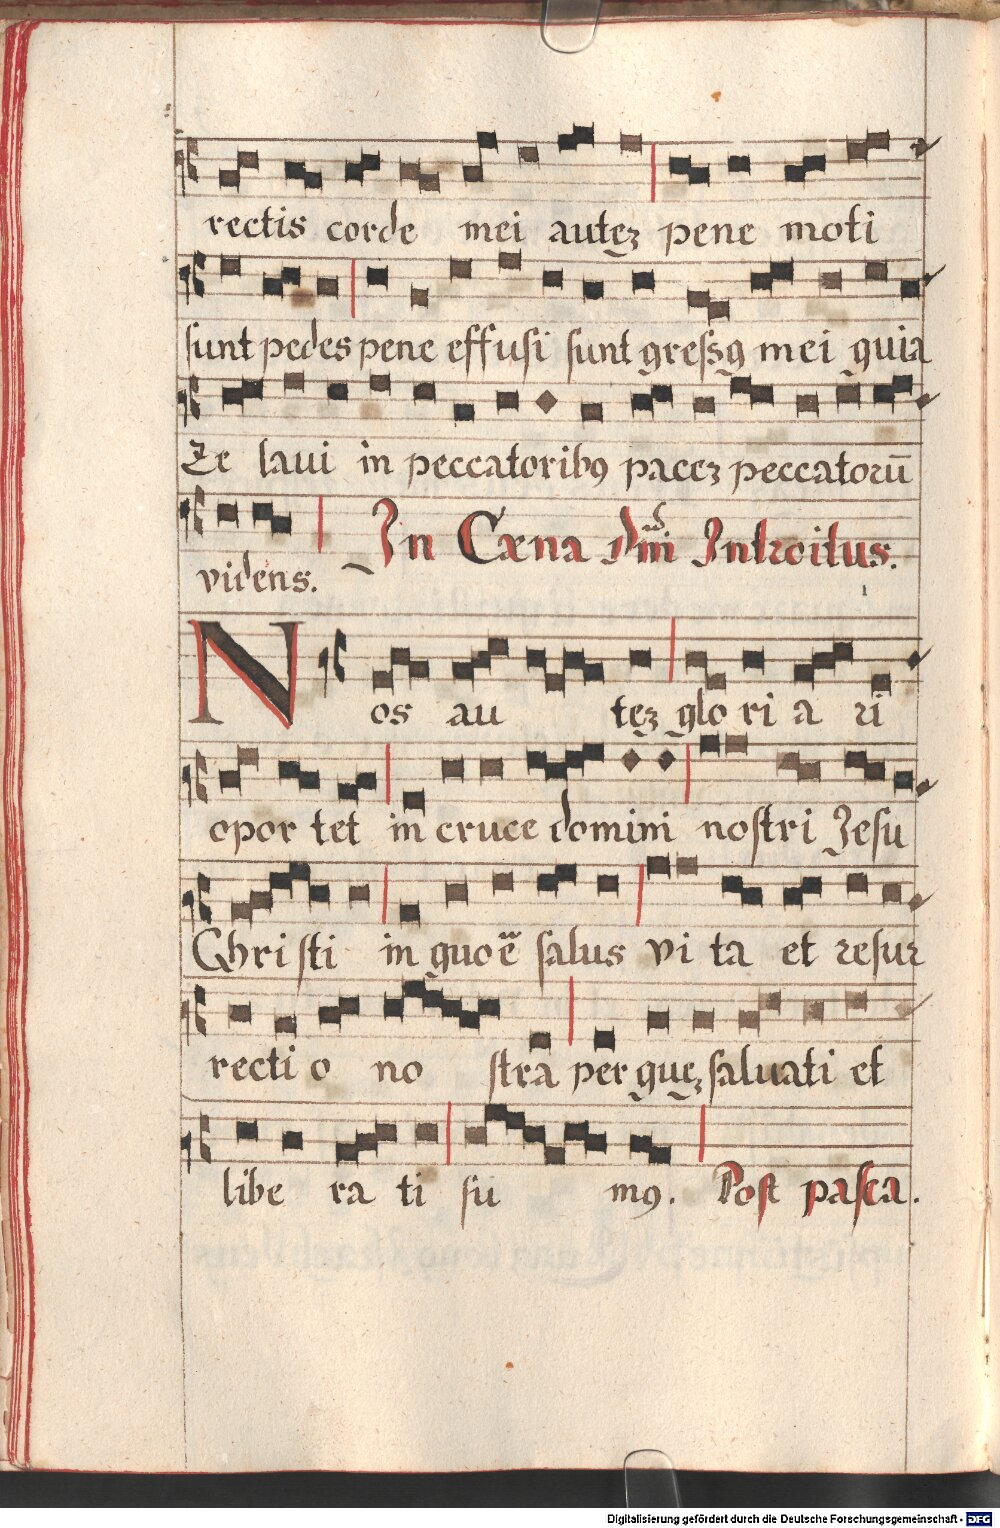 rectis corde mei auteꝫ pene moti
sunt pedes pene effusi sunt gressꝯ mei quia
Ze laui in peccatoribꝯ paceꝫ peccatorū
videns. In Cæna Dñi Introitus.
Nos au teꝫ glo ri a ri
opor tet in cruce domini nostri Jesu
Chri sti in quo ē salus vi ta et resur
recti o no stra per queꝫ saluati et
libe ra ti su mꝯ. Post pasca.
Digitalisierung gefördert durch die Deutsche Forschungsgemeinschaft - DFG